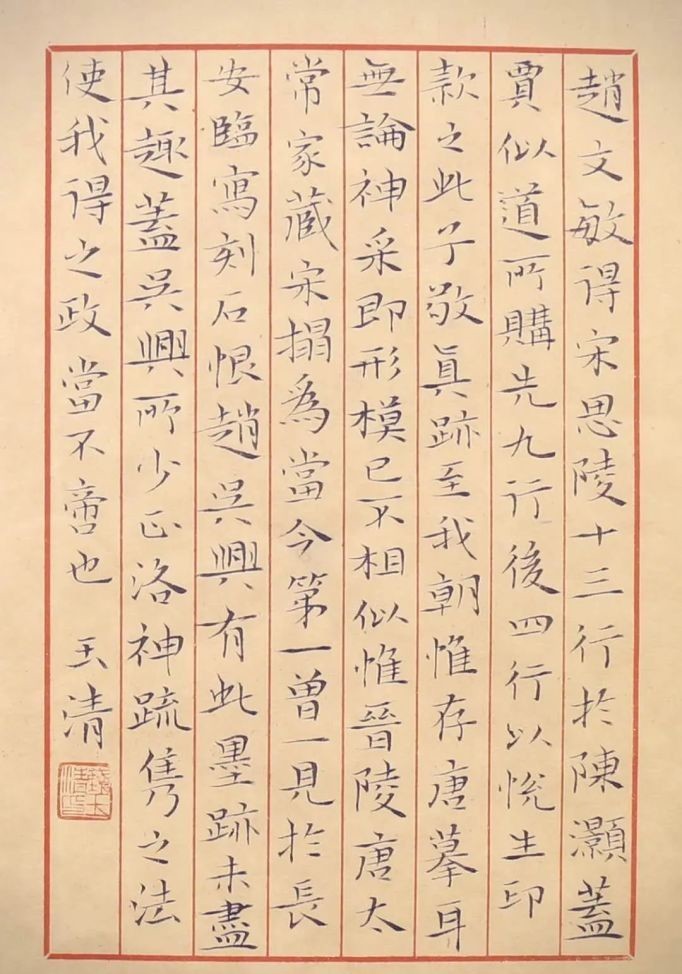 趙文敏得宋思陵十三行於陳灝蓋
賈似道所購先九行後四行以悅生印
款之此子敬真跡至我朝惟存唐摹耳
無論神采即形模已不相似惟晉陵唐太
常家藏宋搨為當今第一曾一見於長
安臨寫刻石恨趙吳興有此墨跡未盡
其趣蓋吳興所少正洛神疏雋之法
使我得之政當不啻也 玉清